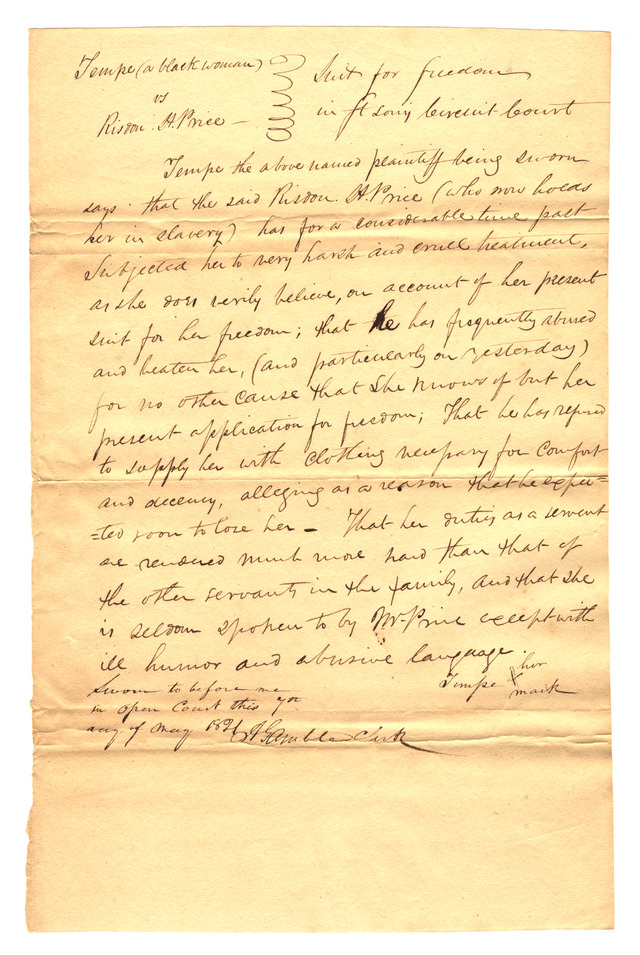 Tempe (a black woman)
vs
Risdon. H. Price —
Suit for freedom
in St Louis Circuit Court
Tempe the above named plaintiff being sworn
says that the said Risdon H. Price (who now holds
her in slavery) has for a considerable time past
subjected her to very harsh and cruel treatment,
as she does verily believe, on account of her present
suit for her freedom; that he has frequently abused
and beaten her, (and particularly on yesterday)
for no other cause that she knows of but her
present application for freedom; That he has refused
to supply her with clothing necessary for comfort
and decency, alleging as a reason that he expec=
=ted soon to lose her — That her duties as a servant
are rendered much more hard than that of
the other servants in the family, and that she
is seldom spoken to by Mr. Price except with
ill humor and abusive language.
Tempe X her
mark
Sworn to before me
in open Court this 7th
day of May 1821
A Gamble Clerk